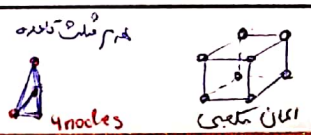 هرم مثلث قاعده
4 nodes
المان مکعبی